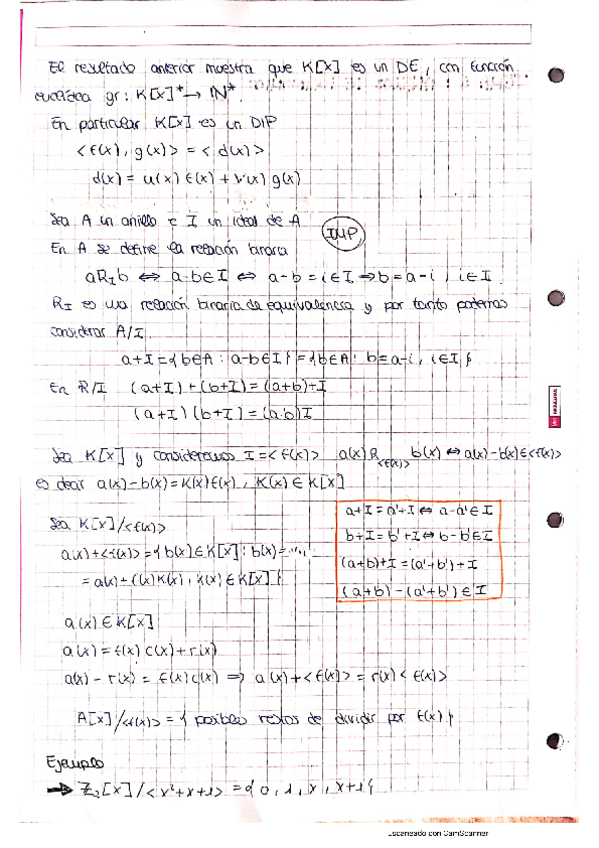 El resultado anterior muestra que K[x] es un DE, con función
euclídea gr: K[x]* → IN*.
En particular K[x] es un DIP
<f(x), g(x)> = <d(x)>
d(x) = u(x) f(x) + v(x) g(x)
Sea A un anillo e I un ideal de A
IMP.
En A se define la relación binaria
aR_I b ⇔ a-b∈I ⇔ a-b=i∈I ⇒ b=a-i, i∈I.
R_I es una relación binaria de equivalencia y por tanto podemos
considerar A/I.
a+I={b∈A : a-b∈I}={b∈A: b=a-i, i∈I}
En R/I (a+I)+(b+I)=(a+b)+I
(a+I)(b+I)=(a·b)I
Sea K[x] y consideremos I=<f(x)> a(x) R_<f(x)> b(x) ⇔ a(x)-b(x)∈<f(x)>
es decir a(x)-b(x)=K(x)f(x), K(x)∈K[x]
Sea K[x]/<f(x)>
a(x)+<f(x)>={b(x)∈K[x]: b(x)=....
=a(x)+f(x)K(x), K(x)∈K[x]}
a+I=a'+I ⇔ a-a'∈I
b+I=b'+I ⇔ b-b'∈I
(a+b)+I=(a'+b')+I
(a+b)-(a'+b')∈I
a(x)∈K[x]
a(x)=f(x)c(x)+r(x)
a(x)-r(x)=f(x)c(x) ⇒ a(x)+<f(x)>=r(x)<f(x)>
A[x]/<f(x)>={posibles restos de dividir por f(x)}
Ejemplo
→ Z₂[x]/<x²+x+1>={0,1,x,x+1}
Escaneado con CamScanner